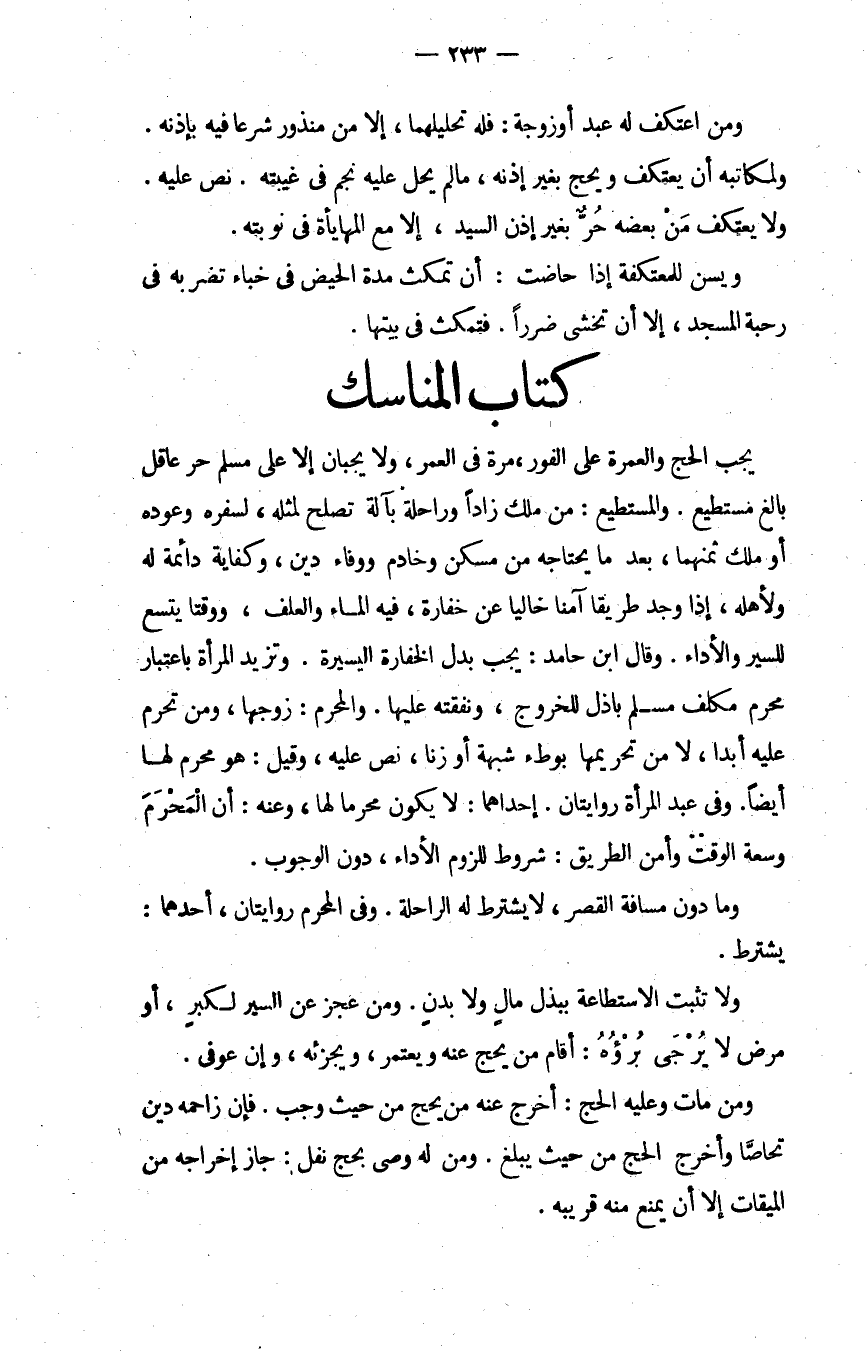 — ٢٣٣ —
ومن اعتكف له عبد أوزوجة : فله تحليلهما ، إلا من منذور شرعا فيه بإذنه .
ولمكاتبه أن يعتكف ويحج بغير إذنه ، مالم يحل عليه نجم فى غيبته . نص عليه .
ولا يعتكف مَنْ بعضه حُرٌّ بغير إذن السيد ، إلا مع المهايأة فى نوبته .
ويسن للمعتكفة إذا حاضت : أن تمكث مدة الحيض فى خباء تضربه فى
رحبة المسجد ، إلا أن تخشى ضرراً . فتمكث فى بيتها .
كتاب المناسك
يجب الحج والعمرة على الفور ،مرة فى العمر ، ولا يجبان إلا على مسلم حر عاقل
بالغ مستطيع . والمستطيع : من ملك زاداً وراحلة بآلة تصلح لمثله ، لسفره وعوده
أو ملك ثمنهما ، بعد ما يحتاجه من مسكن وخادم ووفاء دين ، وكفاية دائمة له
ولأهله ، إذا وجد طريقا آمنا خاليا عن خفارة ، فيه المـاء والعلف ، ووقتا يتسع
للسير والأداء . وقال ابن حامد : يجب بدل الخفارة اليسيرة . وتزيد المرأة باعتبار
محرم مكلف مسـلم باذل للخروج ، ونفقته عليها . والمحرم : زوجها ، ومن تحرم
عليه أبدا ، لا من تحريمها بوطء شبهة أو زنا ، نص عليه ، وقيل : هو محرم لهـا
أيضاً. وفى عبد المرأة روايتان . إحداهما : لا يكون محرما لها ، وعنه : أن الْمَحْرَمَ
وسعة الوقت وأمن الطريق : شروط للزوم الأداء ، دون الوجوب .
وما دون مسافة القصر ، لايشترط له الراحلة . وفى المحرم روايتان ، أحدهما :
يشترط .
ولا تثبت الاستطاعة ببذل مالٍ ولا بدنٍ . ومن عجز عن السير لـكبرٍ ، أو
مرض لا يُرْجَى بُرْؤُهُ : أقام من يحج عنه ويعتمر ، ويجزئه ، وإن عوفى .
ومن مات وعليه الحج : أخرج عنه من يحج من حيث وجب . فإن زاحمه دين
تحاصَّا وأخرج الحج من حيث يبلغ . ومن له وصى بحج نفل : جاز إخراجه من
الميقات إلا أن يمنع منه قريبه .